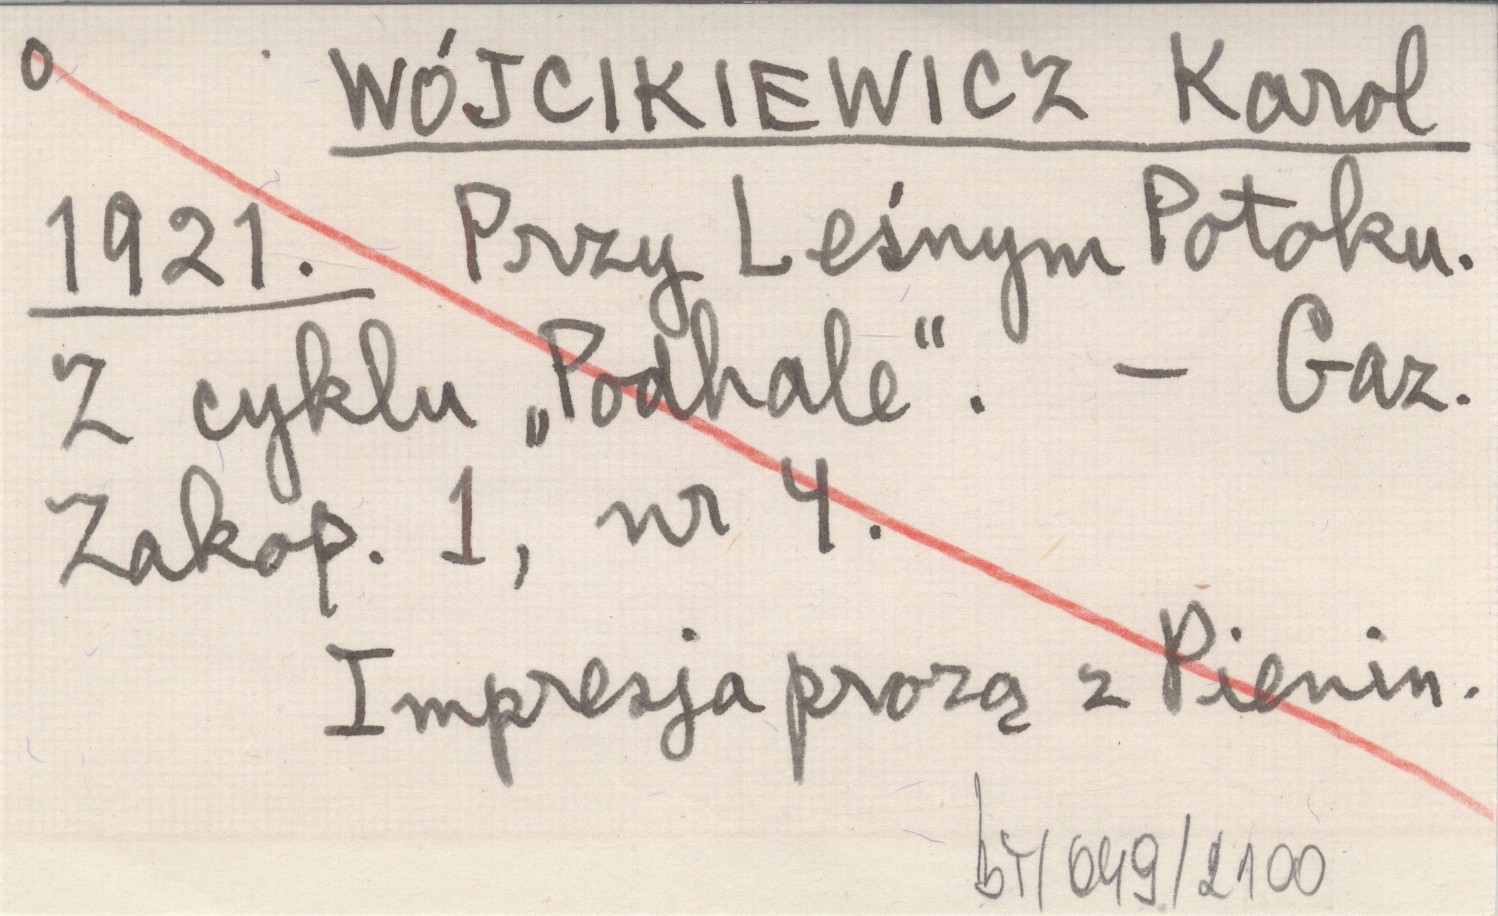 o WÓJCIKIEWICZ Karol
1921. Przy Leśnym Potoku.
Z cyklu „Podhale“. — Gaz.
Zakop. 1, nr 4.
Impresja prozą z Pienin.
bT/049/2100